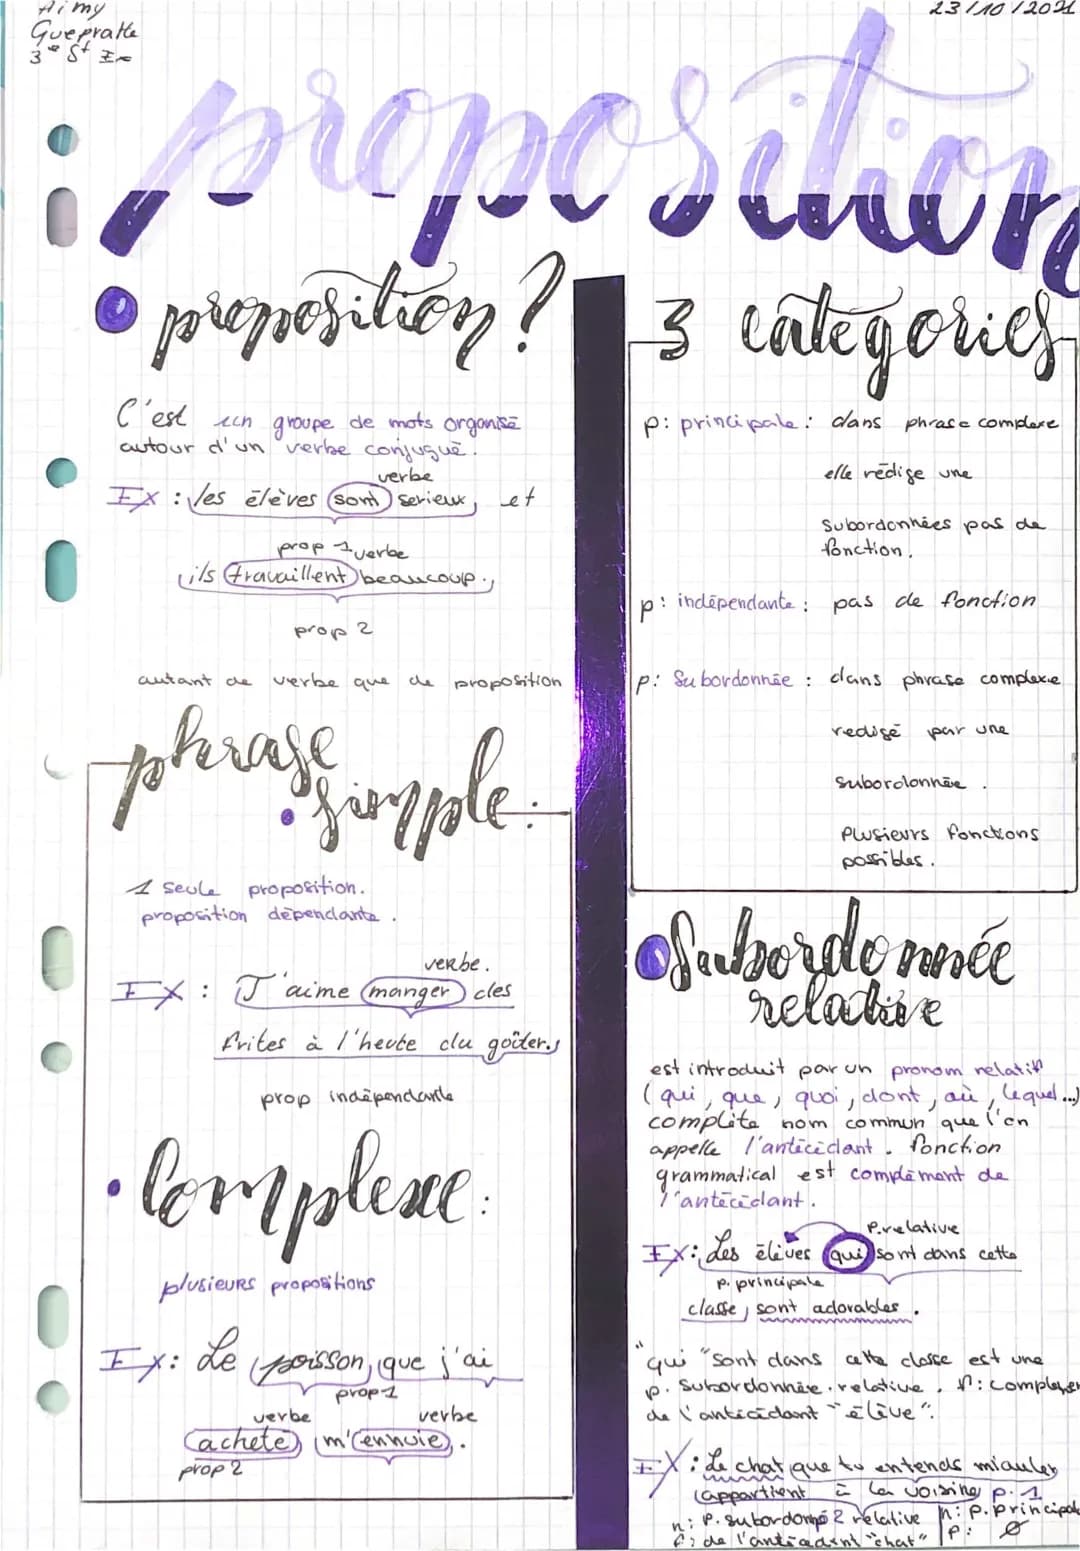 Aimy
Guepratte
3e St Ex
23/10/2021
proposition
proposition ?
C'est un groupe de mots organisé
autour d'un verbe conjugué.
verbe
EX : les élèves sont serieux, et
prop 1 verbe
ils travaillent beaucoup.
prop 2
autant de verbe que de proposition
phrase
simple :
1 seule proposition.
proposition dépendante.
verbe.
EX : J'aime manger des
frites à l'heure du goûter.
prop indépendante
Complexe :
plusieurs propositions
Ex : Le poisson, que j'ai
prop 1
verbe verbe
acheté m'ennuie.
prop 2
3 catégories
p: principale : dans phrase complexe
elle rédige une
subordonnées pas de
fonction.
p: indépendante : pas de fonction
p: Subordonnée : dans phrase complexe
redigé par une
subordonnée.
Plusieurs fonctions
possibles.
Subordonnée
relative
est introduit par un pronom relatif
(qui, que, quoi, dont, où, lequel...)
complète nom commun que l'on
appelle l'antécédant. fonction
grammatical est complément de
l'antécédant.
P.relative
Ex : Les élèves qui sont dans cette
p. principale
classe, sont adorables.
"qui "sont dans cette classe est une
p. subordonnée.relative. f: complemen
de l'antécédant "élève".
EX : Le chat que tu entends miauler
appartient à la voisine p. 1
n: P. subordonné 2 relative n: p. principale
f: de l'antécedent "chat" f: ∅